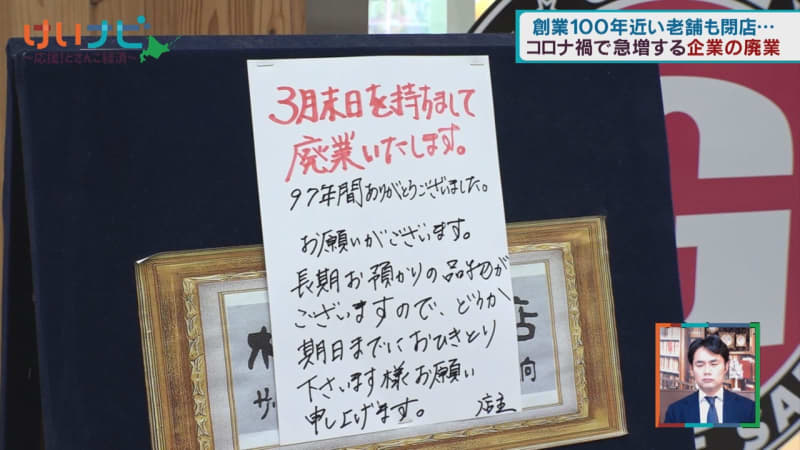 けいナビ
～応援！どさんこ経済～
創業100年近い老舗も閉店…
コロナ禍で急増する企業の廃業
3月末日を持ちまして
廃業いたします。
97年間ありがとうございました。
お願いがございます。
長期お預かりの品物が
ございますので、どうか
期日までにおひきとり
下さいます様お願い
申し上げます。
店主
店
向
G